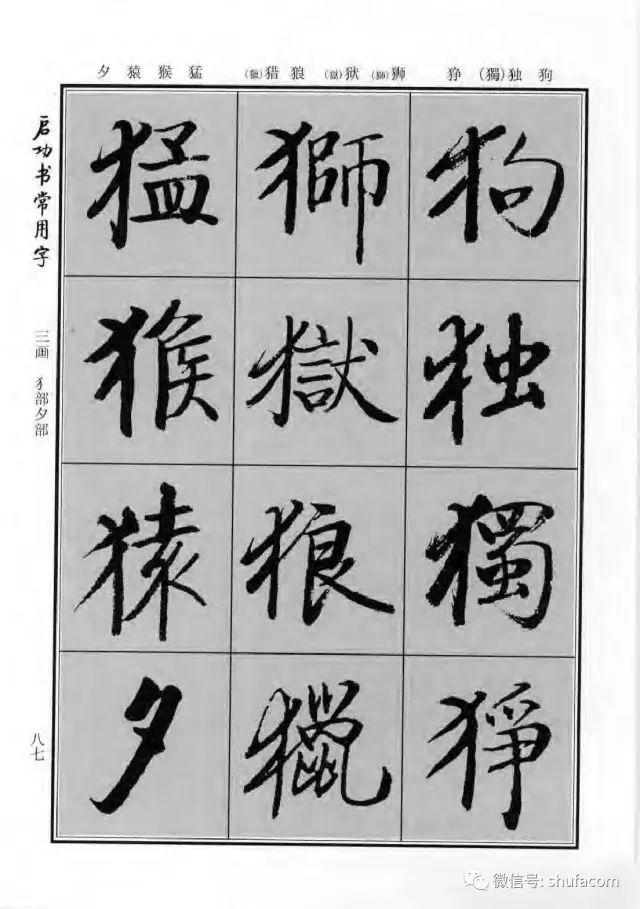 狗 独(獨) 狰 狮(獅) 狱(獄) 狼 猎(獵) 猛 猴 猿 夕
狗
独
獨
猙
獅
獄
狼
獵
猛
猴
猿
夕
启功书常用字
三画 犭部夕部
八七
微信号: shufacom